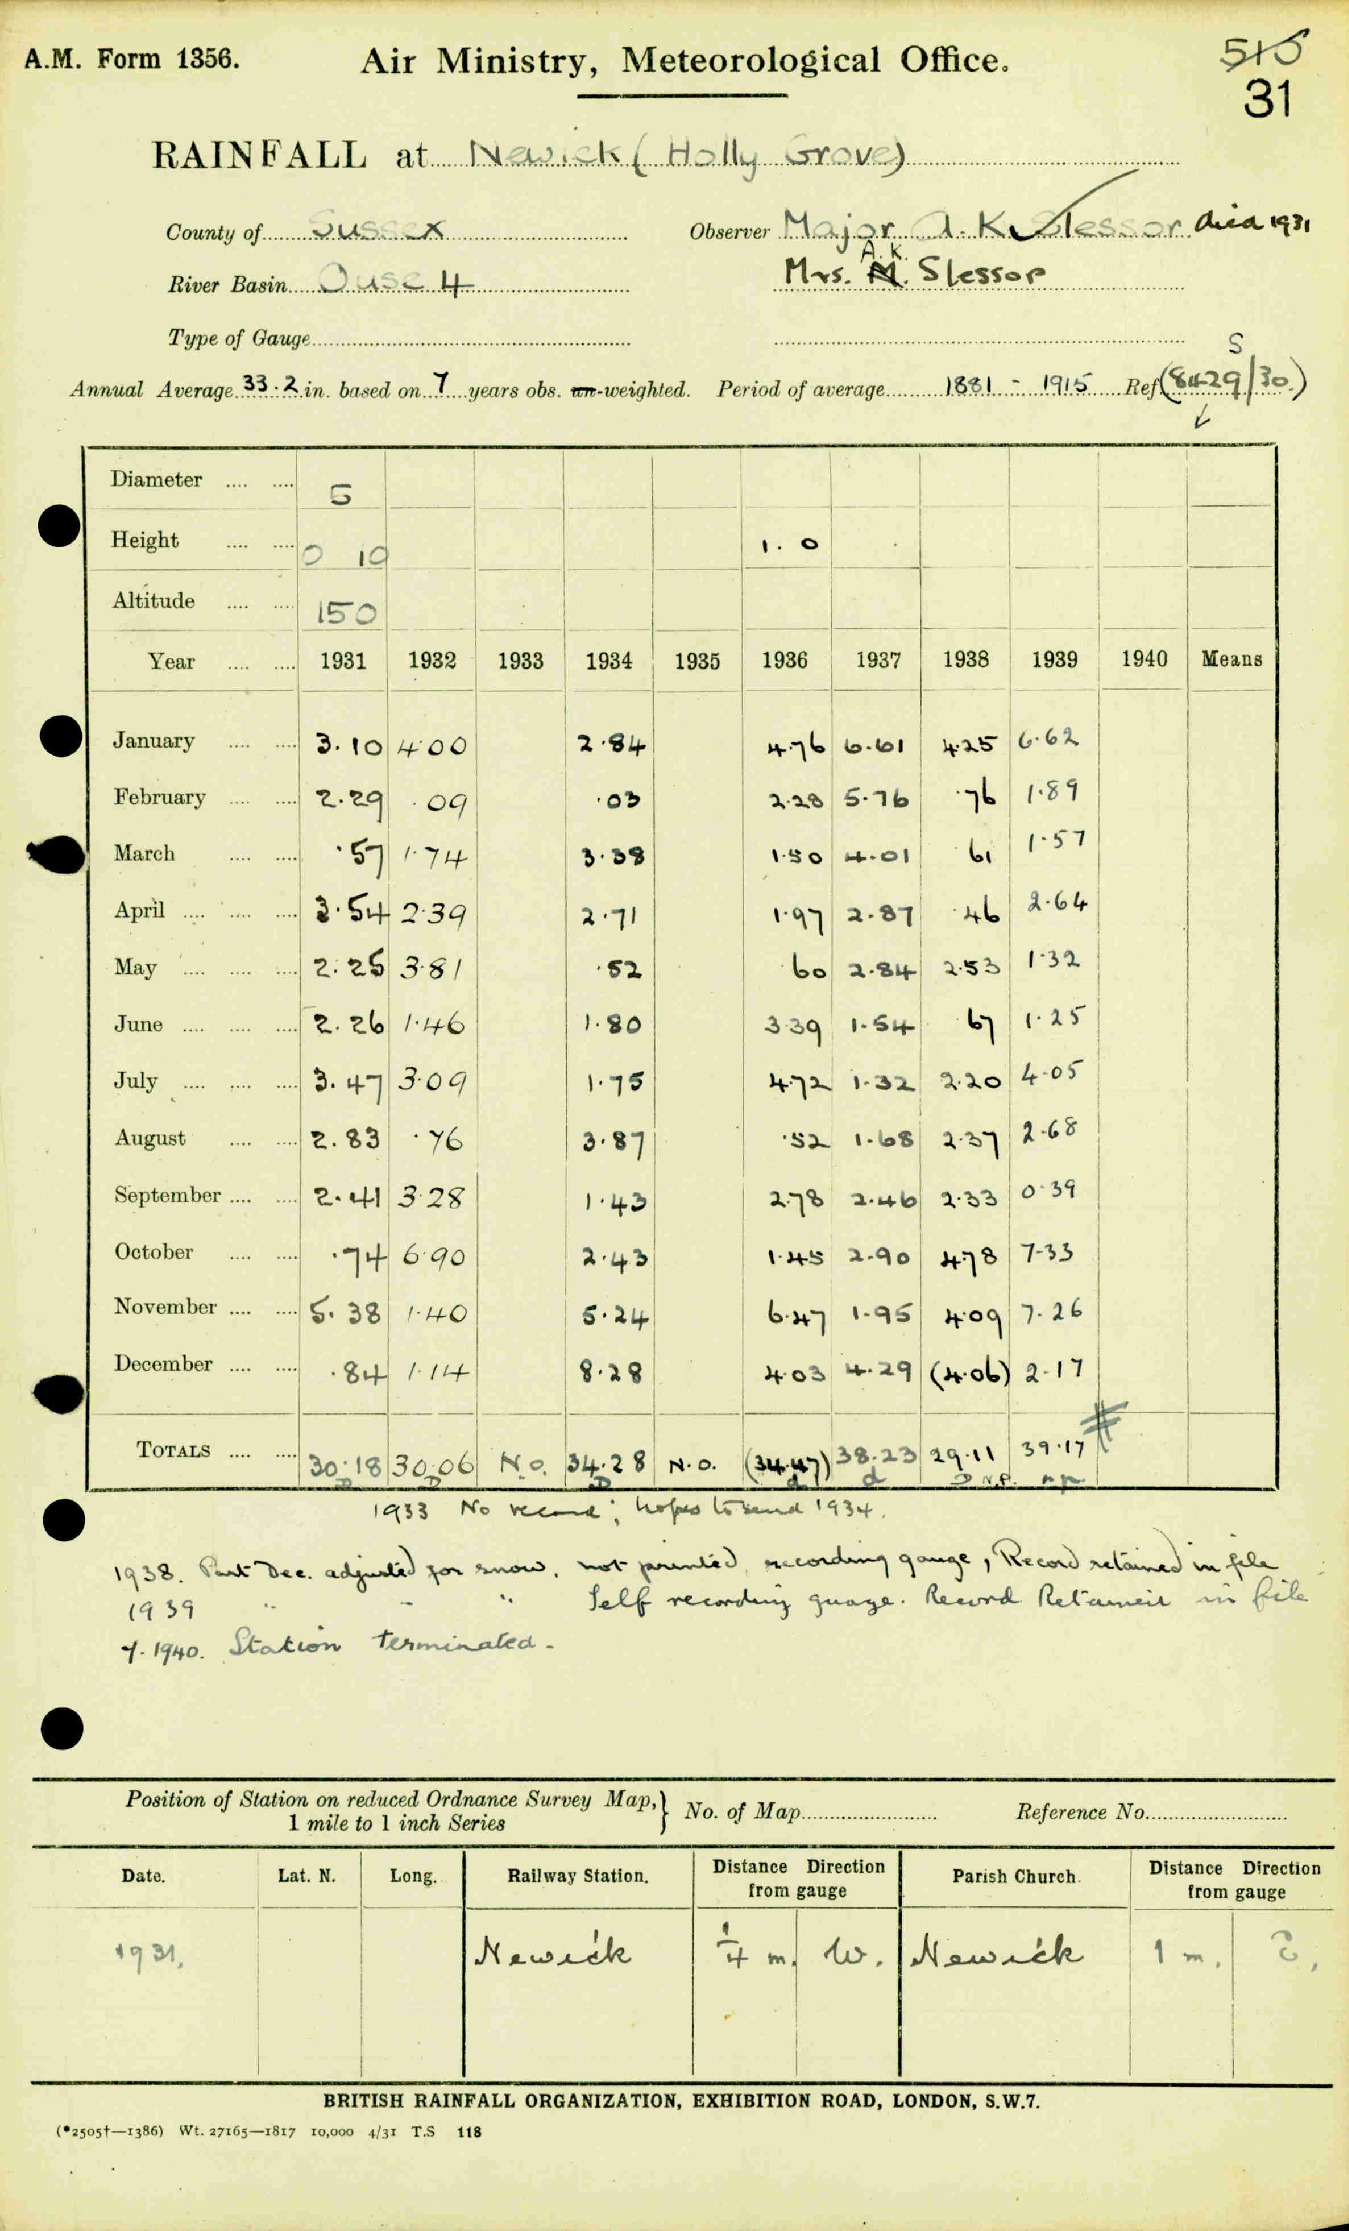 A.M. Form 1356.
Air Ministry, Meteorological Office.
515
31
RAINFALL at Newick (Holly Grove)
County of Sussex
Observer Major A. K. Slessor died 1931
River Basin Ouse 4
A.K.
Mrs. M. Slessor
Type of Gauge
Annual Average 33.2 in. based on 7 years obs. un-weighted. Period of average 1881 - 1915 Ref (S 8429/30.)
Diameter .... .... 5
Height .... .... 0 10 1. 0
Altitude .... .... 150
Year .... .... 1931 1932 1933 1934 1935 1936 1937 1938 1939 1940 Means
January .... .... 3.10 4.00 2.84 4.76 6.61 4.25 6.62
February .... .... 2.29 .09 .03 2.28 5.76 .76 1.89
March .... .... .57 1.74 3.38 1.50 4.01 61 1.57
April .... .... .... 3.54 2.39 2.71 1.97 2.87 .46 2.64
May .... .... .... 2.25 3.81 .52 60 2.84 2.53 1.32
June .... .... .... 2.26 1.46 1.80 3.39 1.54 67 1.25
July .... .... .... 3.47 3.09 1.75 4.72 1.32 2.20 4.05
August .... .... 2.83 .76 3.87 .52 1.68 2.37 2.68
September .... .... 2.41 3.28 1.43 2.78 2.46 2.33 0.39
October .... .... .74 6.90 2.43 1.45 2.90 4.78 7.33
November .... .... 5.38 1.40 5.24 6.47 1.95 4.09 7.26
December .... .... .84 1.14 8.28 4.03 4.29 (4.06) 2.17
TOTALS .... .... 30.18 30.06 N.o. 34.28 N.o. (34.47) 38.23 29.11 39.17
D D D d d D N.P. np
1933 No record; hopes to send 1934.
1938. Part Dec. adjusted for snow. not printed, recording gauge, Record retained in file
1939 " - " Self recording guage. Record Retained in file
1940. Station terminated.
Position of Station on reduced Ordnance Survey Map,
1 mile to 1 inch Series
No. of Map
Reference No.
Date. Lat. N. Long. Railway Station. Distance Direction from gauge Parish Church. Distance Direction from gauge
1931. Newick 1/4 m. W. Newick 1 m. E.
BRITISH RAINFALL ORGANIZATION, EXHIBITION ROAD, LONDON, S.W.7.
(*2505†—1386) Wt. 27165—1817 10,000 4/31 T.S 118